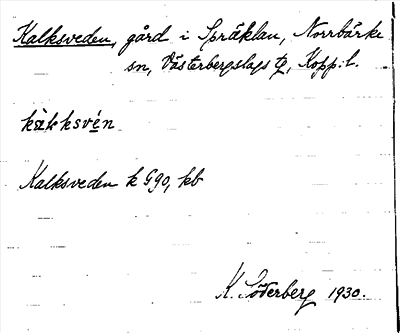 Kalksveden, gård i Spräklan, Norrbärke
sn, Västerbergslags tg, Kopp:l.
kàkksvén
Kalksveden k G90, kb
K. Söderberg 1930.